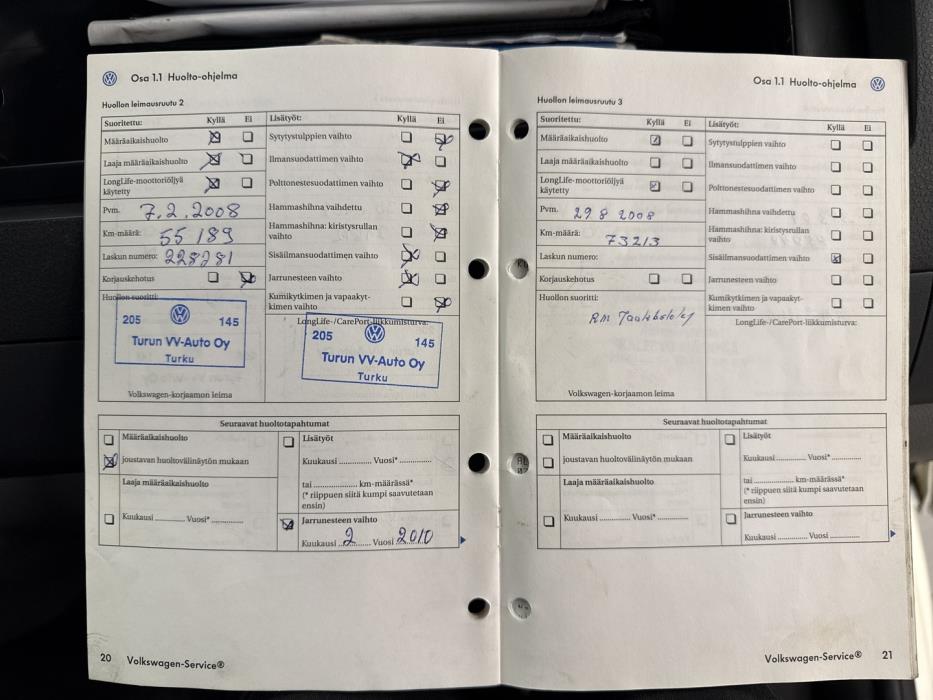 Osa 1.1 Huolto-ohjelma
Huollon leimausruutu 2
Suoritettu: Kyllä Ei
Määräaikaishuolto
Laaja määräaikaishuolto
LongLife-moottoriöljyä
käytetty
Pvm. 7.2.2008
Km-määrä: 55 189
Laskun numero: 228281
Korjauskehotus
Huollon suoritti:
205 145
Turun VV-Auto Oy
Turku
Volkswagen-korjaamon leima
Lisätyöt: Kyllä Ei
Sytytystulppien vaihto
Ilmansuodattimen vaihto
Polttonestesuodattimen vaihto
Hammashihna vaihdettu
Hammashihna: kiristysrullan
vaihto
Sisäilmansuodattimen vaihto
Jarrunesteen vaihto
Kumikytkimen ja vapaakyt-
kimen vaihto
LongLife-/CarePort-liikkumisturva:
205 145
Turun VV-Auto Oy
Turku
Seuraavat huoltotapahtumat
Määräaikaishuolto
joustavan huoltovälinäytön mukaan
Laaja määräaikaishuolto
Kuukausi ........... Vuosi* ...............
Lisätyöt
Kuukausi ............. Vuosi* ...............
tai ..................... km-määrässä*
(* riippuen siitä kumpi saavutetaan
ensin)
Jarrunesteen vaihto
Kuukausi 2 Vuosi 2010
20 Volkswagen-Service®
Osa 1.1 Huolto-ohjelma
Huollon leimausruutu 3
Suoritettu: Kyllä Ei
Määräaikaishuolto
Laaja määräaikaishuolto
LongLife-moottoriöljyä
käytetty
Pvm. 29 8 2008
Km-määrä: 73213
Laskun numero:
Korjauskehotus
Huollon suoritti:
RM
Volkswagen-korjaamon leima
Lisätyöt: Kyllä Ei
Sytytystulppien vaihto
Ilmansuodattimen vaihto
Polttonestesuodattimen vaihto
Hammashihna vaihdettu
Hammashihna: kiristysrullan
vaihto
Sisäilmansuodattimen vaihto
Jarrunesteen vaihto
Kumikytkimen ja vapaakyt-
kimen vaihto
LongLife-/CarePort-liikkumisturva:
Seuraavat huoltotapahtumat
Määräaikaishuolto
joustavan huoltovälinäytön mukaan
Laaja määräaikaishuolto
Kuukausi ........... Vuosi* ...............
Lisätyöt
Kuukausi ............. Vuosi* .............
tai ..................... km-määrässä*
(* riippuen siitä kumpi saavutetaan
ensin)
Jarrunesteen vaihto
Kuukausi ............. Vuosi .............
Volkswagen-Service® 21